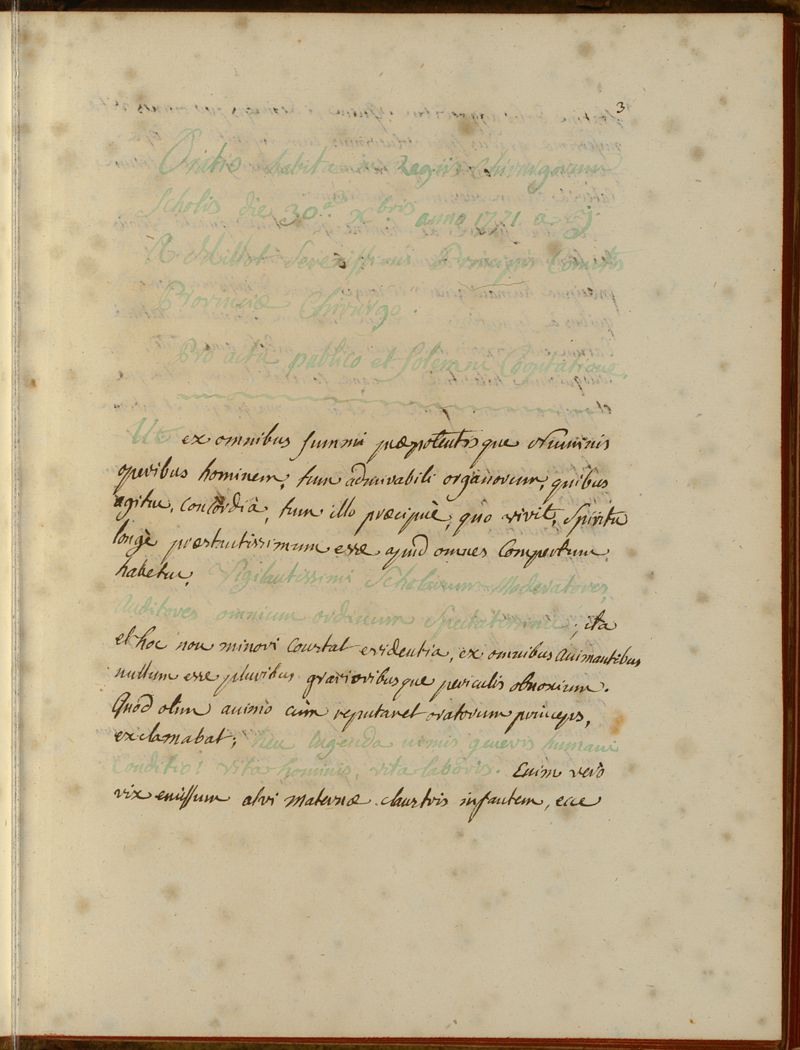 3
Oratio habita in Regiis Chirurgorum
Scholis die 30.a xbris anno 1771 a J.
A Millot Serenissimi Principis Comitis
Provinciæ Chirurgo.
Pro actu publico et solemni Cooptatione.
Ut ex omnibus summi præpotentisque Numinis
operibus hominem, tum admirabili organorum, quibus
agitur, concordiâ, tum illo præcipuè, quo vivit, spiritu
longè præstantissimum esse apud omnes compertum
habetur, Vigilantissimi Scholarum Moderatores,
Auditores omnium ordinum Spectatissimi; ita
et hoc non minori constat evidentia, ex omnibus animantibus
nullum esse pluribus gravioribusque periculis obnoxium.
Quod olim animo cùm reputaret oratorum princeps,
exclamabat; heu lugenda nimis generis humani
Conditio! vita hominis, vita laboris. Enim vero
vix emissum alvi maternæ claustris infantem, ecce